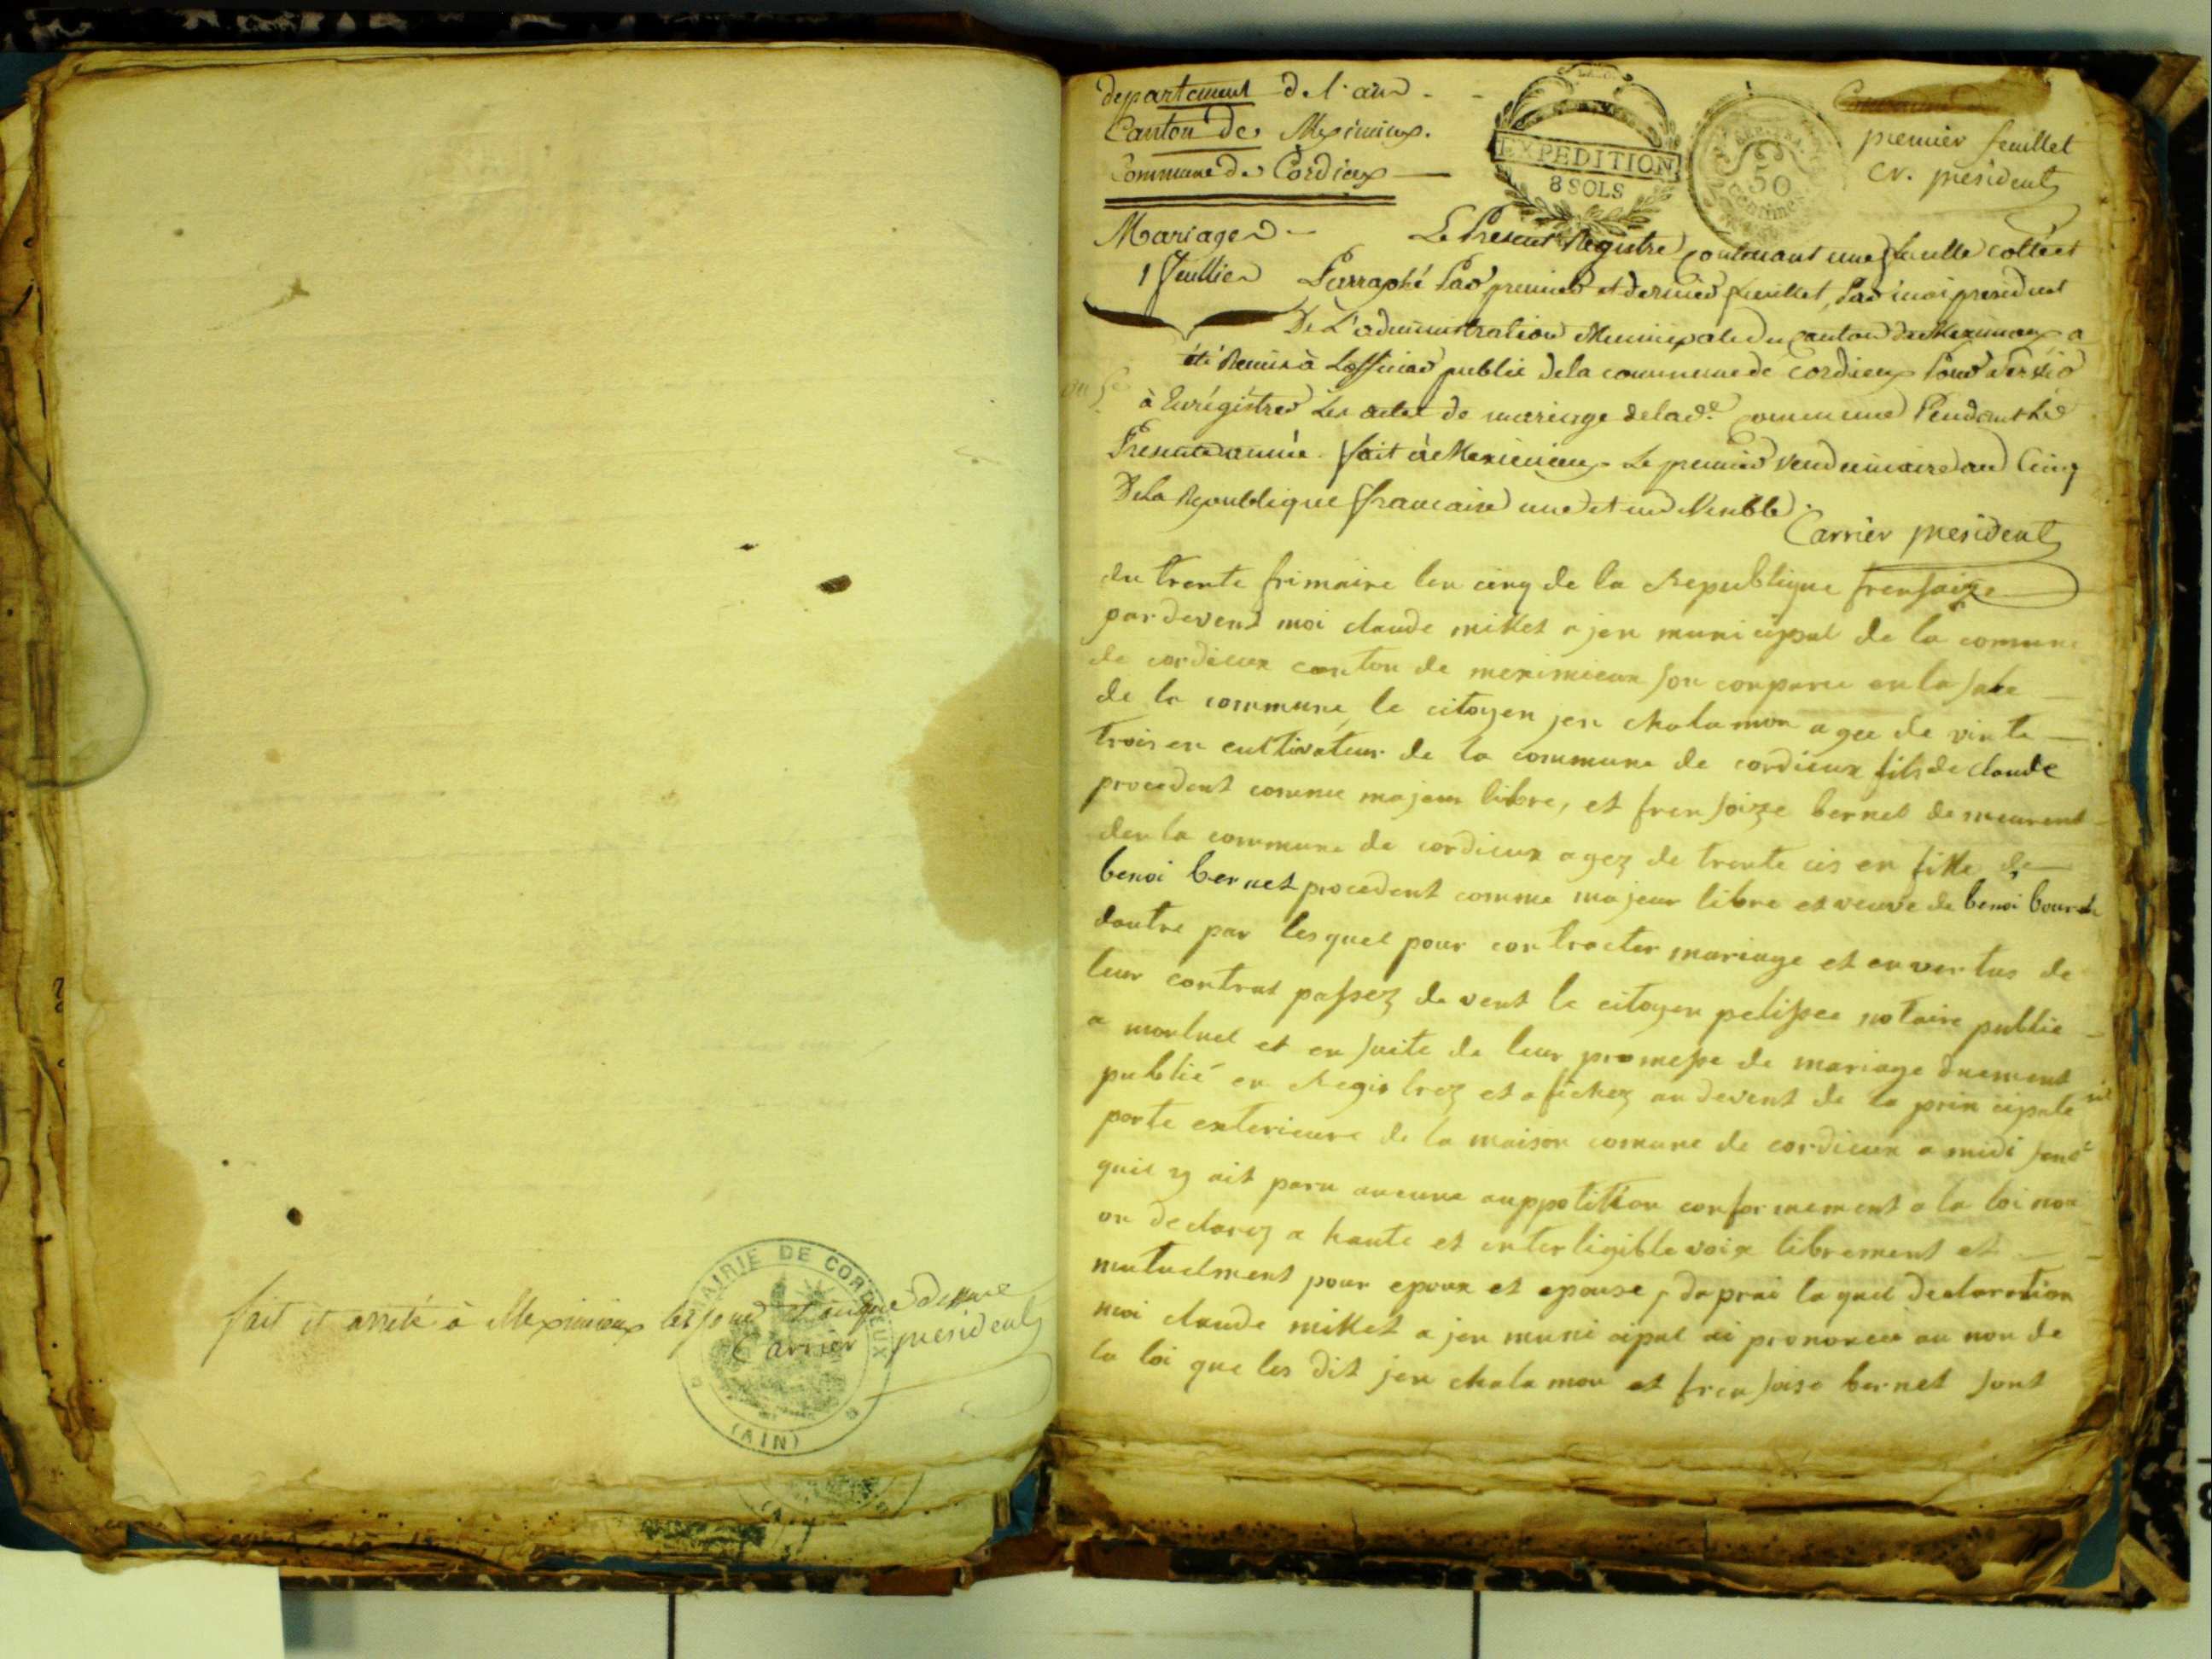 fait et arreté à Meximieux les jour et an que dessus
Carrier president
MAIRIE DE CORDIEUX
(AIN)
departement de l'ain
Canton de Meximieux.
Commune de Cordieux
EXPEDITION
8 SOLS
REP. FRA.
50
Centimes
premier feuillet
cr. president
Mariages
1 feuillet
Le Present Registre contenant une feuille cottée et
Parraphé Par premier et dernier feuillet, Par moi president
De L'administration Municipale du canton de Meximieux a
été Remis à L'officier public de la commune de Cordieux Pour servir
à Enrégistrer Les actes de mariage de lad.e commune Pendant La
Presente année. fait à Meximieux Le premier vendemiaire an Cinq
De La Republique francaise une et indivisible.
Carrier president
du trente frimaire len cinq de la Republique frensaize
pardevent moi claude millet ajen municipal de la comune
de cordieux canton de meximieux son conparu en la sale
de la commune le citoyen jen chalamon agee de vinte
trois en cultivateur de la commune de cordieux fils de claude
procedent comme majeur libre, et frensoize bernet demeurent
den la commune de cordieux agez de trente cis en fille de
benoi bernet procedent comme majeur libre et veuve de benoi
doutre par lesquel pour contracter mariage et en vertus de
leur contrat passez devent le citoyen pelissee notaire public
a monluel et en suite de leur promesse de mariage duement
publié en Registrez et afichez au devent de la principale
porte exterieure de la maison comune de cordieux a midi sens
quil y ait paru aucune auppotition conformement a la loi non
on declarez a haute et enterligible voix librement et
mutuelment pour epoux et epouse, daprai laquel declaration
moi claude millet ajen municipal ai prononcee au non de
la loi que les dit jen chalamon et frensoise bernet sont